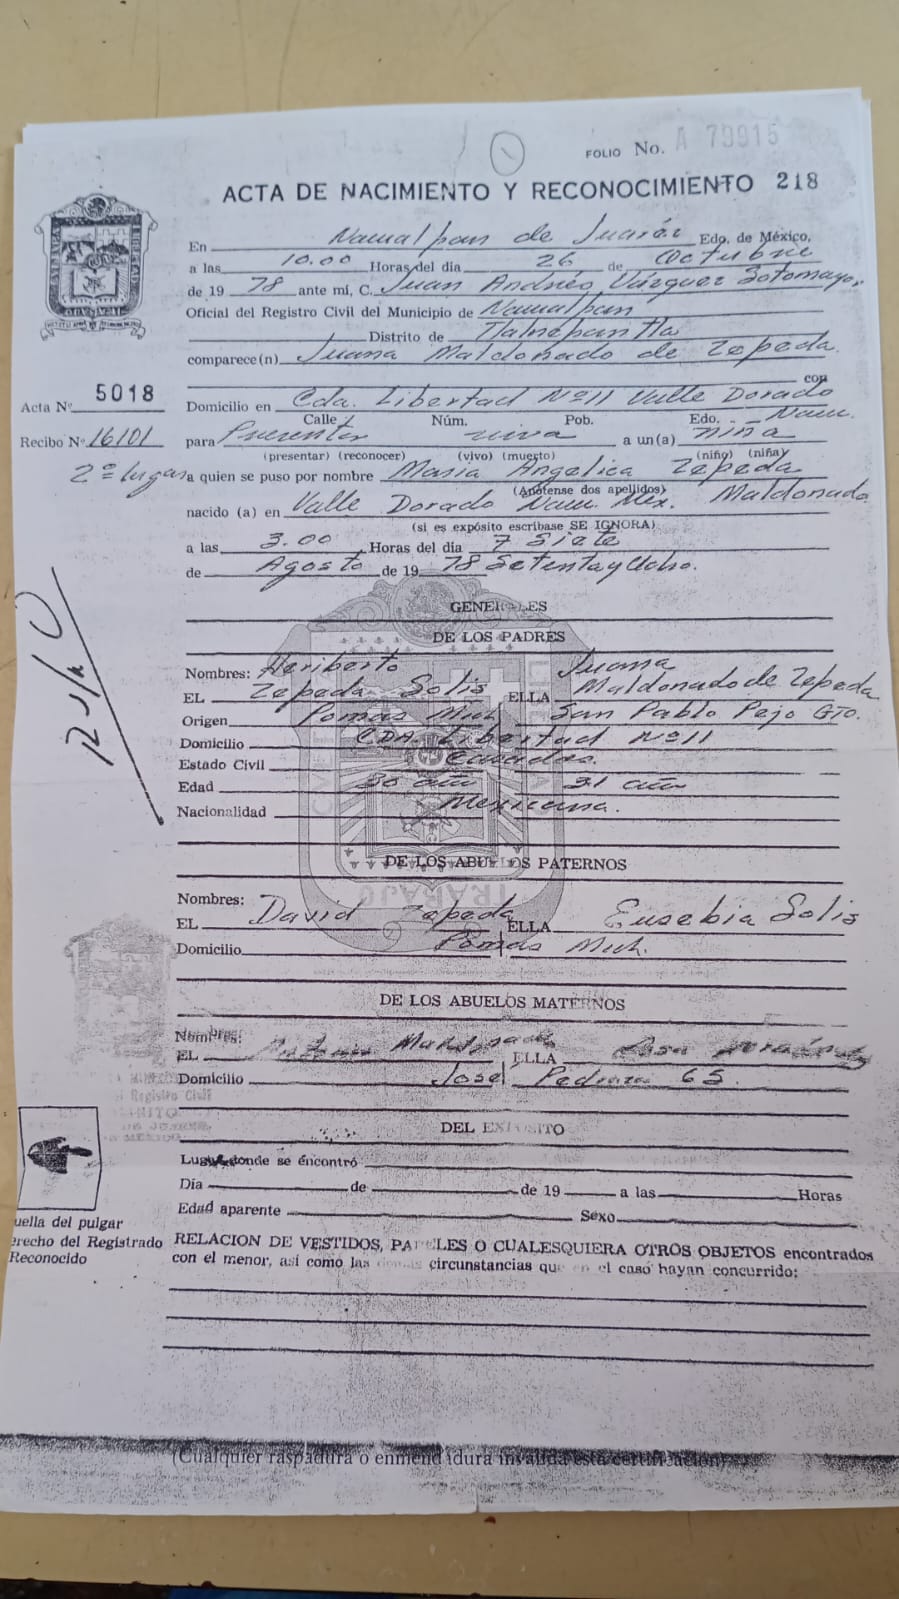 FOLIO No. A 79915
ACTA DE NACIMIENTO Y RECONOCIMIENTO 218
En Naucalpan de Juarez Edo, de México,
a las 10.00 Horas del día 26 de Octubre
de 19 78 ante mí, C. Juan Andrés Vázquez Sotomayor
Oficial del Registro Civil del Municipio de Naucalpan
Distrito de Tlalnepantla
comparece(n) Juana Maldonado de Zepeda.
con
Acta Nº 5018
Domicilio en Cda. Libertad Nº 11 Valle Dorado
Calle Núm. Pob. Edo. Nau.
Recibo Nº 16101
para Presentar viva a un(a) niña
(presentar) (reconocer) (vivo) (muerto) (niño) (niña)
2º lugar
a quien se puso por nombre Maria Angelica Zepeda
(Anótense dos apellidos) Maldonado
nacido (a) en Valle Dorado Nau. Mex.
(si es expósito escríbase SE IGNORA)
a las 3.00 Horas del día 7 Siete
de Agosto de 19 78 Setenta y Ocho.
GENERALES
DE LOS PADRES
Nombres: Heriberto Juana
EL Zepeda Solis ELLA Maldonado de Zepeda
Origen Pomas Mich San Pablo Pejo GTO.
Domicilio CDA. Libertad Nº 11
Estado Civil Casados.
Edad 30 año 31 año
Nacionalidad Mexicana.
DE LOS ABUELOS PATERNOS
Nombres:
EL David Zepeda ELLA Eusebia Solis
Domicilio Pomas Mich.
DE LOS ABUELOS MATERNOS
Nombres:
EL Maldonado ELLA Rosa
Domicilio José Pedraza 65.
Registro Civil
DEL EXPOSITO
Lugar donde se encontró
Día de de 19 a las Horas
Edad aparente Sexo
uella del pulgar
erecho del Registrado
Reconocido
RELACION DE VESTIDOS, PAPELES O CUALESQUIERA OTROS OBJETOS encontrados
con el menor, así como las demás circunstancias que en el caso hayan concurrido:
(Cualquier raspadura o enmendidura invalida esta certificación)